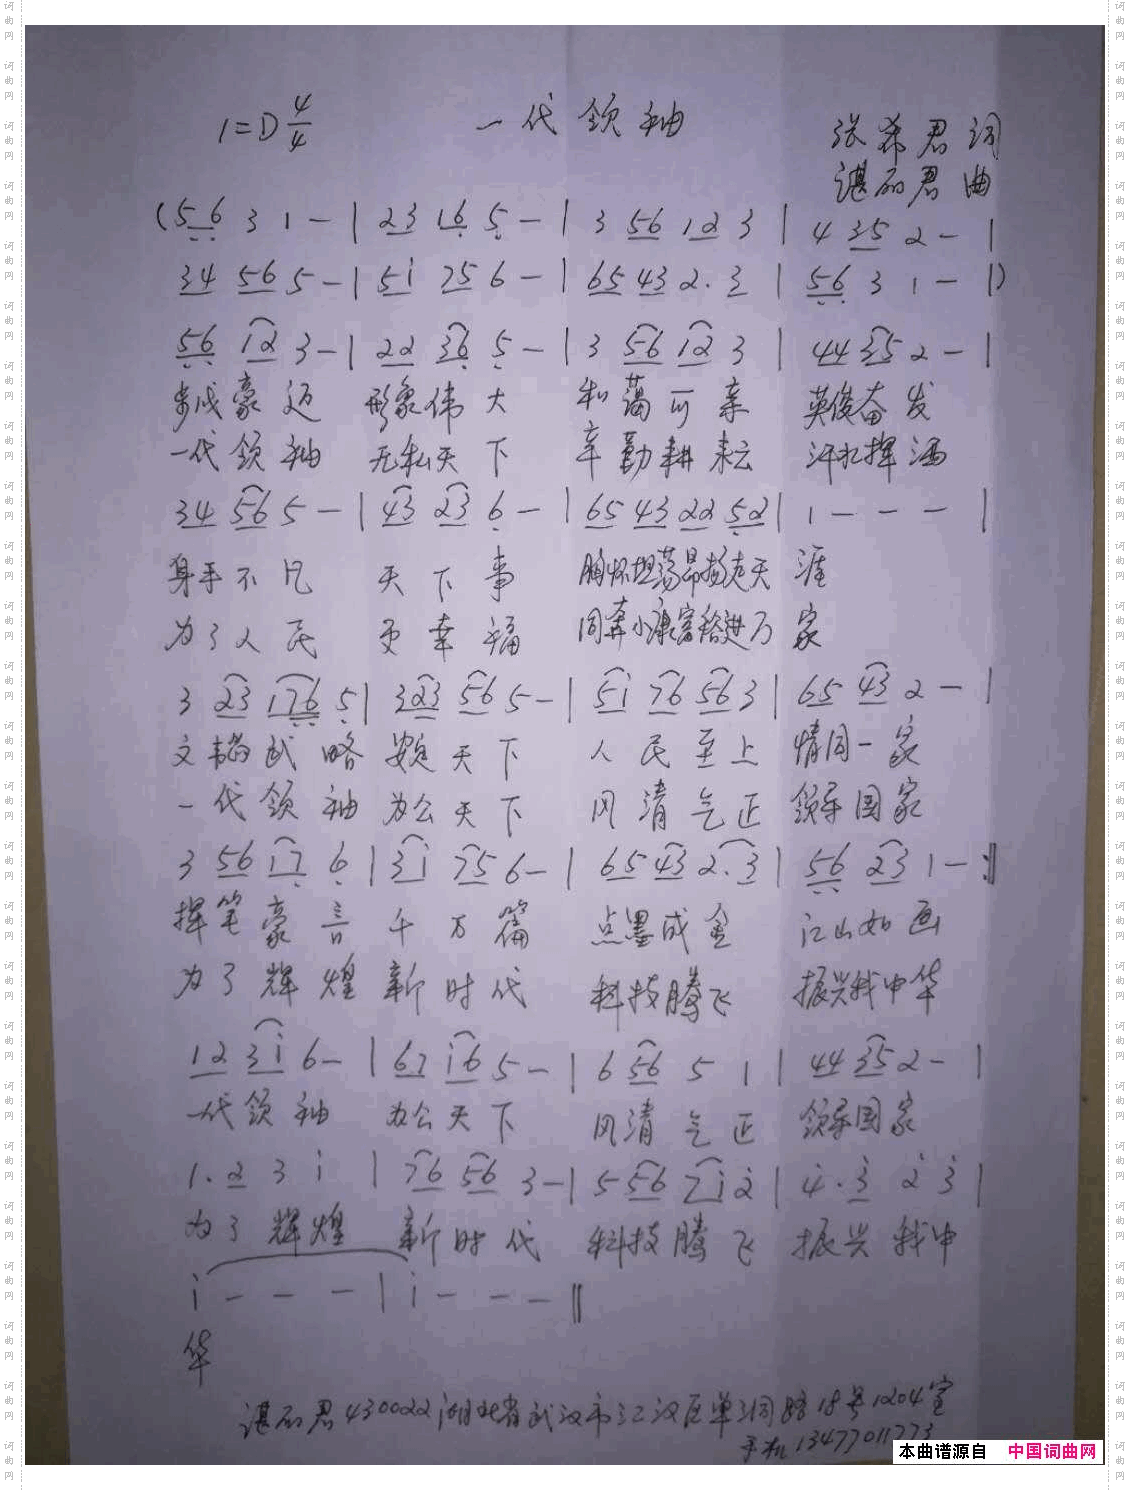 1=D 4/4 一代领袖 张希君 词
谌丽君 曲
(56 3 1 - | 23 16 5 - | 3 56 12 3 | 4 35 2 - |
34 56 5 - | 51 75 6 - | 65 43 2. 3 | 56 3 1 - |)
56 12 3 - | 22 36 5 - | 3 56 12 3 | 44 35 2 - |
步伐豪迈 形象伟大 和蔼可亲 英俊奋发
一代领袖 无私天下 辛勤耕耘 汗水挥洒
34 56 5 - | 43 23 6 - | 65 43 22 52 | 1 - - - |
身手不凡 天下事 胸怀坦荡昂扬走天涯
为了人民 更幸福 同奔小康富裕进万家
3 23 176 5 | 323 56 5 - | 51 76 56 3 | 65 43 2 - |
文韬武略 安定天下 人民至上 情同一家
一代领袖 为公天下 风清气正 领导国家
3 56 17 6 | 31 75 6 - | 65 43 2. 3 | 56 23 1 - :||
挥笔豪言 千万篇 点墨成金 江山如画
为了辉煌 新时代 科技腾飞 振兴我中华
12 31 6 - | 67 16 5 - | 6 56 5 1 | 44 35 2 - |
一代领袖 为公天下 风清气正 领导国家
1. 2 3 1 | 76 56 3 - | 5 56 71 2 | 4. 3 2 3 |
为了辉煌 新时代 科技腾飞 振兴我中
1 - - - | 1 - - - ||
华
谌丽君 430022 湖北省武汉市江汉区单洞路18号1204室
手机 13477011773
本曲谱源自 中国词曲网